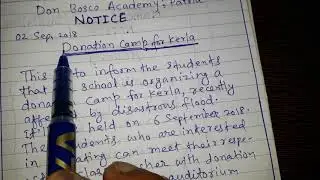 Don Bosco Academy, Patna
NOTICE
02 Sep, 2018
Donation Camp for Kerla
This to inform the students
that school is organizing a
dona Camp for Kerla, recently
affe by disastrous flood.
It'll held on 6 September 2018.
The students, who are interested
in ating can meet their respe-
cher with donation
auditorium